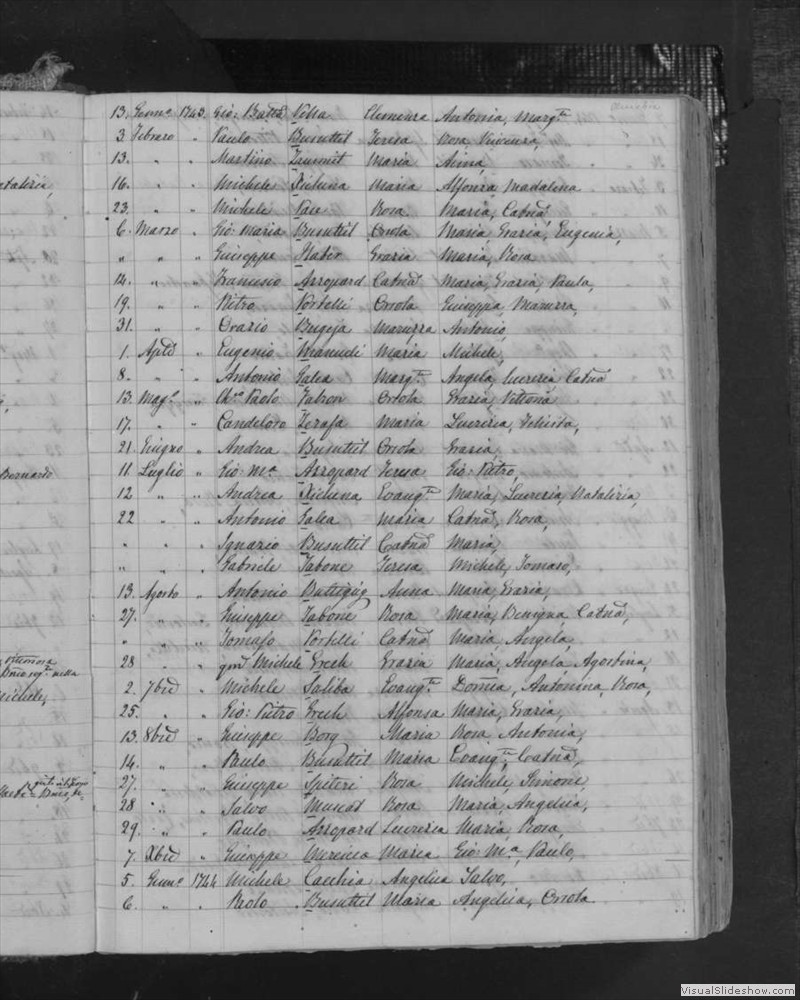 13. Genn.o 1743. Gio: Batta Vella Clemenza Antonia, Marg.ta
3. Febraro " Paulo Busuttil Teresa Rosa, Vincenza,
13. " " Martino Zammit Maria Anna,
Natalizia, 16. " " Michele Xicluna Maria Alfonsa Madalena
23. " " Michele Pace Rosa Maria, Catna
6. Marzo " Gio: Maria Busuttil Orsola Maria Grazia, Eugenia,
" " " Giuseppe Grazia Maria, Rosa
14. " " Francesco Azzopard Catna Maria, Grazia, Paula,
19. " " Pietro Portelli Orsola Giuseppa, Maruzza,
31. " " Orazio Bugeja Maruzza Antonio,
1. Aple " Eugenio Manueli Maria Michele,
8. " " Antonio Galea Marg.ta Angela, Lucrezia, Catna
13. Magg.o " Paolo Fabron Orsola Grazia, Vittoria
17. " " Candeloro Zerafa Maria Lucrezia, Felicita,
21. Giugno " Andrea Busuttil Orsola Grazia,
Bernardo 11. Luglio " Gio: M.a Azzopard Teresa Gio: Pietro,
12 " " Andrea Xicluna Evang.ta Maria, Lucrezia, Natalizia,
22 " " Antonio Galea Maria Catna, Rosa,
" " " Ignazio Busuttil Catna Maria,
" " " Gabriele Tabone Teresa Michele, Tomaso,
13. Agosto " Antonio Buttigieg Anna Maria, Grazia,
27. " " Giuseppe Tabone Rosa Maria, Benigna, Catna,
" " " Tomaso Portelli Catna Maria, Angela,
28 " " qm Michele Grech Grazia Maria, Angela, Agostina,
Michele, 2. 7bre " Michele Saliba Evang.ta Domca, Antonina, Rosa,
25. " " Gio: Pietro Grech Alfonsa Maria, Grazia,
13. 8bre " Giuseppe Borg Maria Rosa Antonia,
14. " " Paulo Busuttil Maria Evang.ta, Catna,
27. " " Giuseppe Spiteri Rosa Michele, Simone,
28 " " Salvo Muscat Rosa Maria, Angelica,
29. " " Paulo Azzopard Lucrezia Maria, Rosa,
7. Xbre " Giuseppe Mercieca Maria Gio: M.a, Paulo,
5. Genn.o 1744 Michele Cacchia Angelica Salvo,
6. " " Paolo Busuttil Maria Angelica, Orsola
VisualSlideshow.com